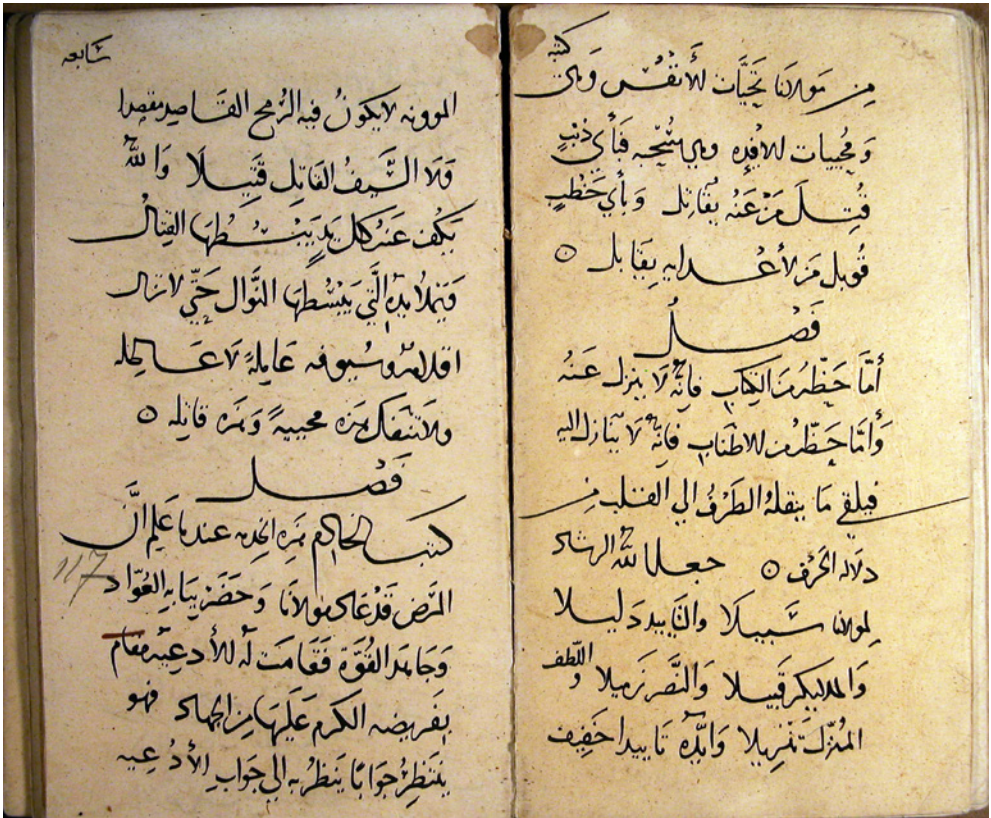 كتبه
من مولانا تحيّات للأنفس وهي
ومحييات للافئده وهي شحيحه فبأي ذنب
قُتِلَ مَن عَنهُ يقاتل وبأي خَطب
قُوبل مَن لأعدايه يقابل ه
فَصل
أمّا حَظّه من الكتاب فانه لا ينزل عَنهُ
وَأمّا حظّه من الاطناب فانه لا ينازل اليه
فيلقي مَا ينقلهُ الطرفُ الي القلب من
دلاله الحرف ه جعل الله الرشاد
لمولانا سَبيلا والتاييد دَليلا
والملايكه قَبيلا والنصر زَميلا واللّطف
المُنزّل تَنزيلا وايّده تاييدا خَفيف

شابعه
الموونه لا يكونُ فيه الرُمح القاصد مقصدا
وَلا السَّيفُ القاتل قتيلا وَالله
يكف عَنه كل يدٍ يبسُطها القتال
ويملأ يده الّتي يَبسُطها النَّوال حَتّي لا تزال
اقلامه وسيوفه عَامِلةً لا عَـ
ولا تنفك مَره محييةً وَمَره قاتِله ه
فَصل
كتب الخادم هَذِه الخدمه عند ما عَلم انّ
المَرَض قد عَاد مَولانا وَحَضَر ببابه العُوّاد
وَجَا مَدد القُوّة فَقامَت لهُ الأدعيَة مقام
بفَريضه الكرم عَليها من الجهاد فهو
يَنتظِرُ جَوابًا يَنظُر به الي جَواب الأدعِيه
117